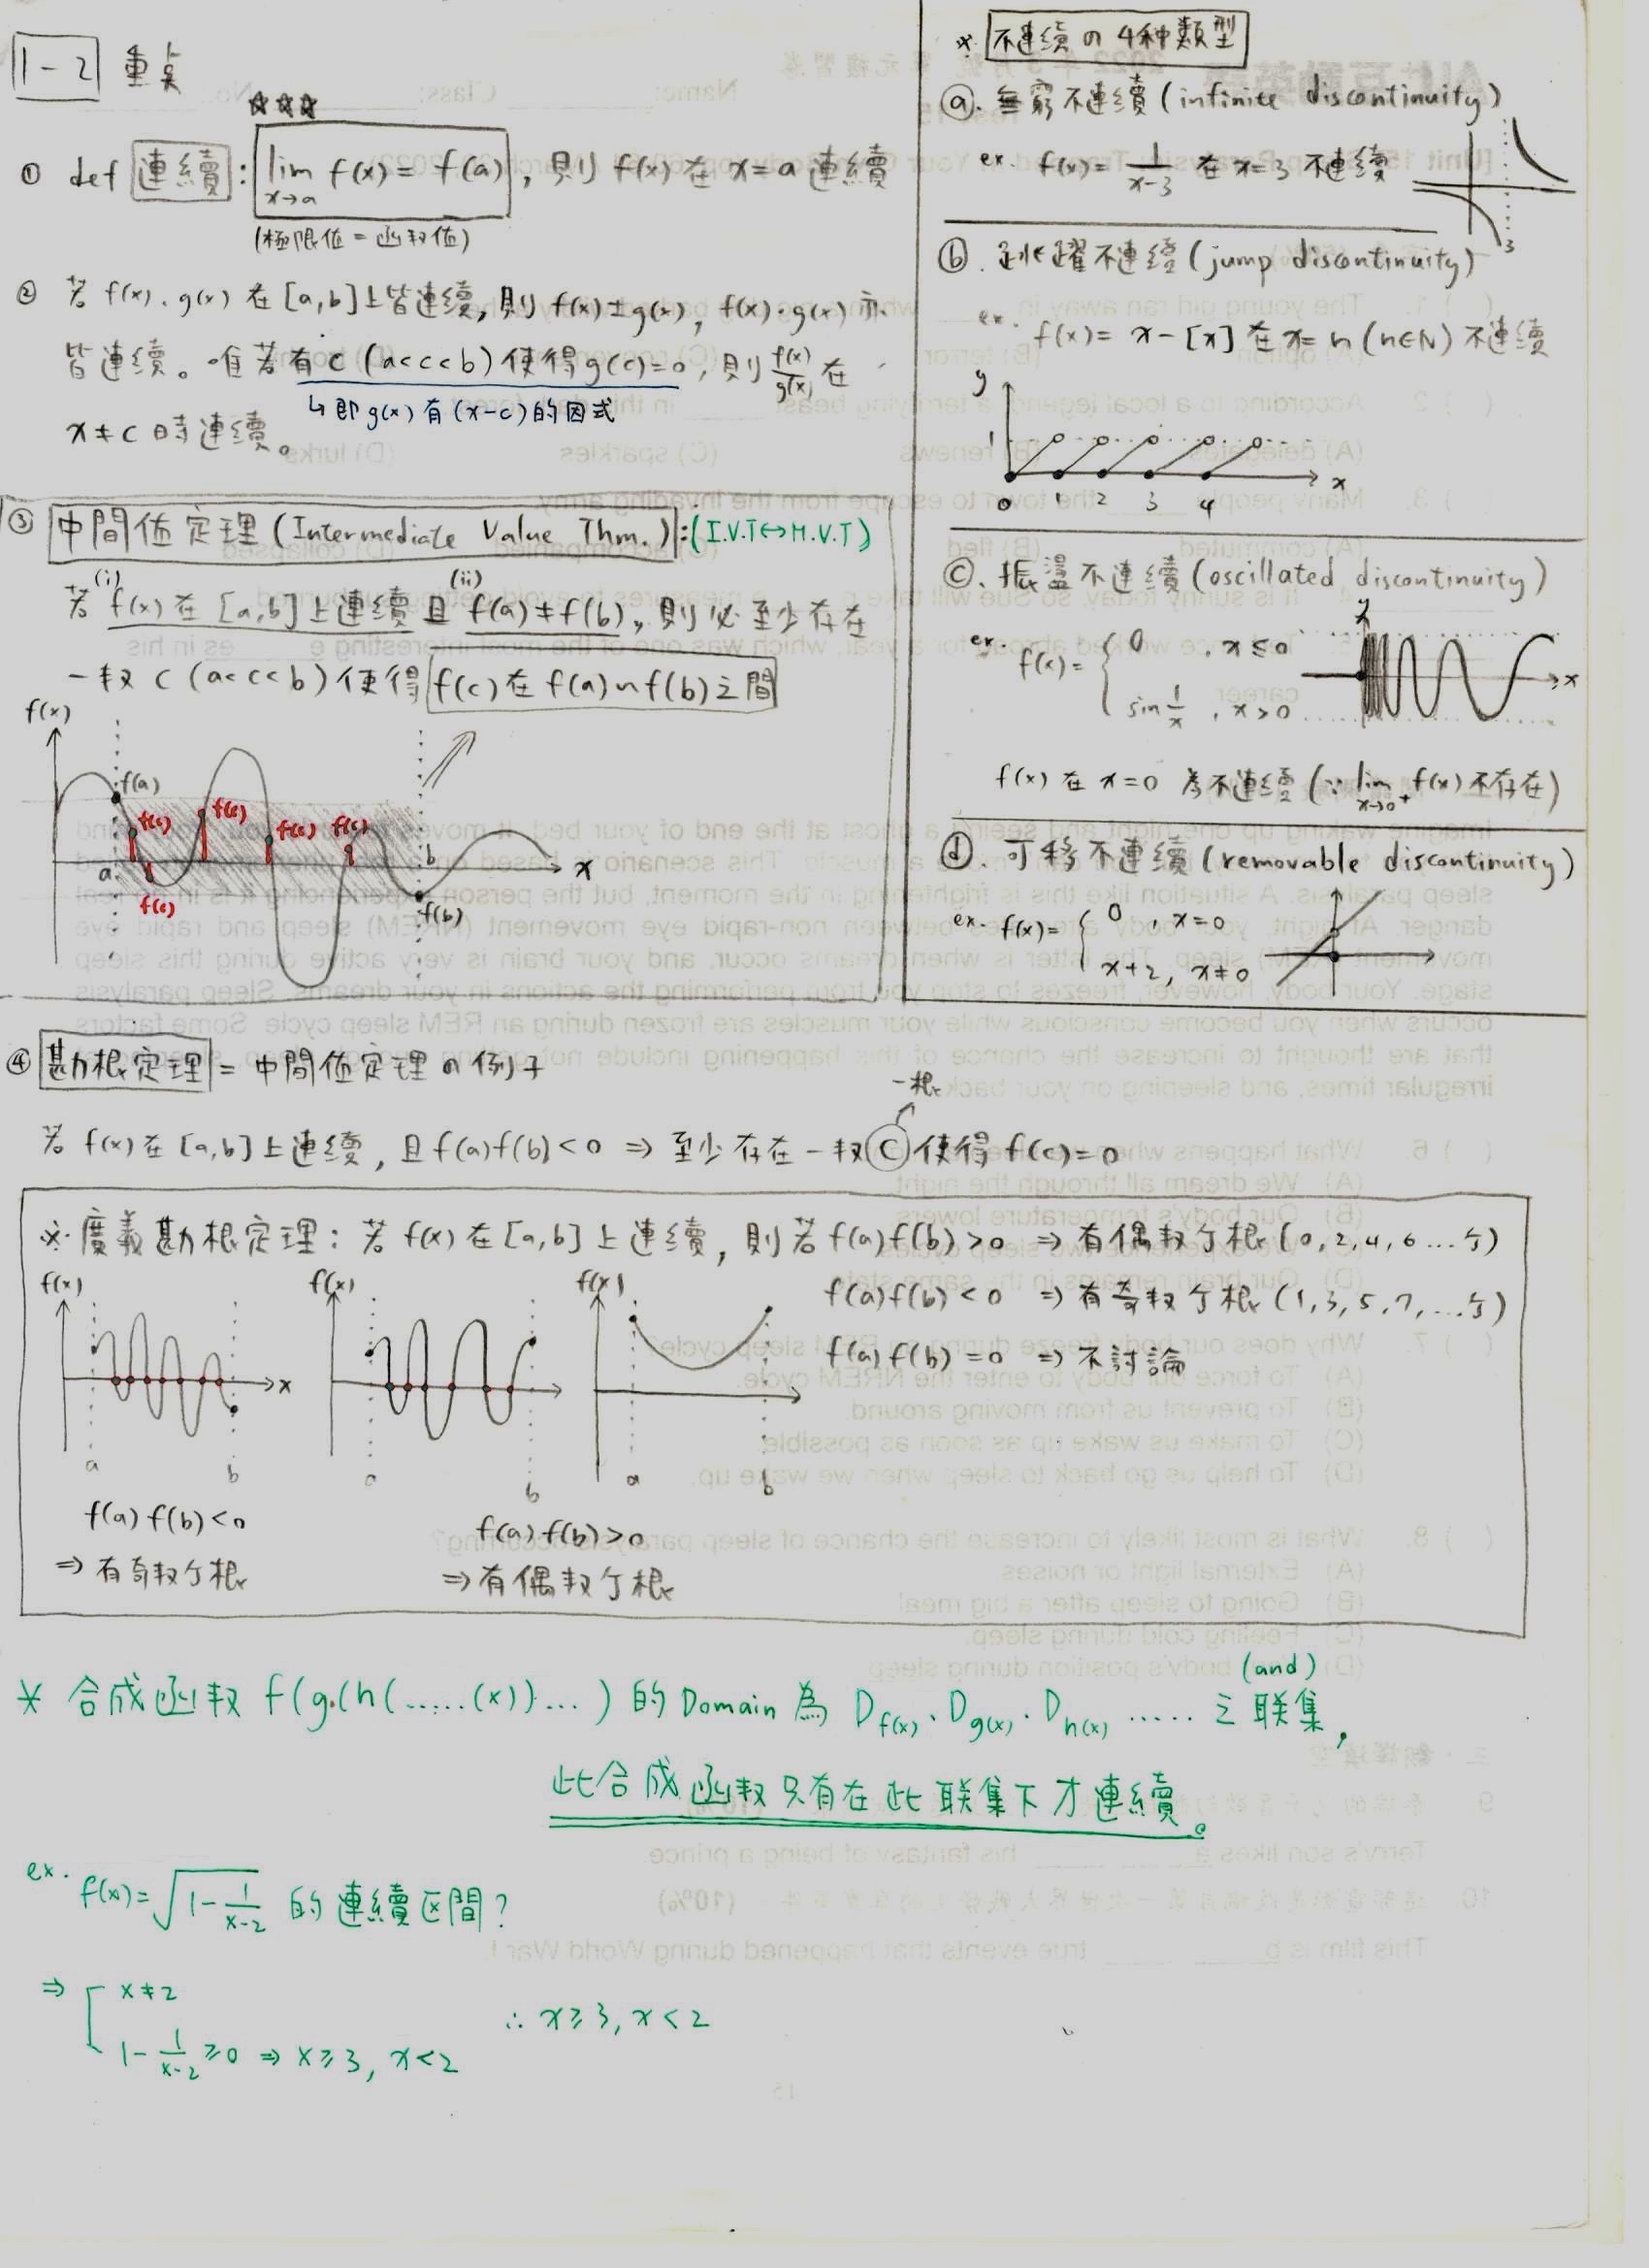 1-2 重点
☆☆☆
① def 連續：lim x→a f(x) = f(a)，則 f(x) 在 x=a 連續
(極限值=函数值)
② 若 f(x), g(x) 在 [a,b] 上皆連續, 則 f(x)±g(x), f(x)·g(x) 亦
皆連續。唯若有 c (a<c<b) 使得 g(c)=0, 則 f(x)/g(x) 在
↳ 即 g(x) 有 (x-c) 的因式
x≠c 時連續。
③ 中間值定理 (Intermediate Value Thm.) : (I.V.T↔M.V.T)
(i) (ii)
若 f(x) 在 [a,b] 上連續 且 f(a)≠f(b), 則必至少存在
一数 c (a<c<b) 使得 f(c) 在 f(a)~f(b) 之間
f(x)
f(a)
f(c) f(c) f(c) f(c)
a b x
f(c)
f(b)
※ 不連續の4种類型
ⓐ. 無窮不連續 (infinite discontinuity)
ex. f(x)= 1/(x-3) 在 x=3 不連續
3
ⓑ. 跳躍不連續 (jump discontinuity)
ex. f(x)= x-[x] 在 x=n (n∈N) 不連續
y
1
0 1 2 3 4 x
ⓒ. 振盪不連續 (oscillated discontinuity)
ex. f(x)= { 0 , x≤0
sin 1/x , x>0
y
x
f(x) 在 x=0 為不連續 (∵ lim x→0⁺ f(x) 不存在)
ⓓ. 可移不連續 (removable discontinuity)
ex. f(x)= { 0 , x=0
x+2, x≠0
④ 勘根定理 = 中間值定理の例子
一根
若 f(x) 在 [a,b] 上連續, 且 f(a)f(b)<0 ⇒ 至少存在一数 c 使得 f(c)=0
※ 廣義勘根定理: 若 f(x) 在 [a,b] 上連續, 則若 f(a)f(b)>0 ⇒ 有偶数个根 (0,2,4,6...个)
f(a)f(b)<0 ⇒ 有奇数个根 (1,3,5,7,...个)
f(a)f(b)=0 ⇒ 不討論
f(x) f(x) f(x)
x
a b a b a b
f(a)f(b)<0
⇒ 有奇数个根
f(a)f(b)>0
⇒ 有偶数个根
(and)
* 合成函数 f(g(h(.....(x))...) 的 Domain 為 D f(x), D g(x), D h(x) ..... 之联集,
此合成函数只有在此联集下才連續。
ex. f(x)=√(1-1/(x-2)) 的連續区間?
⇒ x≠2
1-1/(x-2)≥0 ⇒ x≥3, x<2
∴ x≥3, x<2